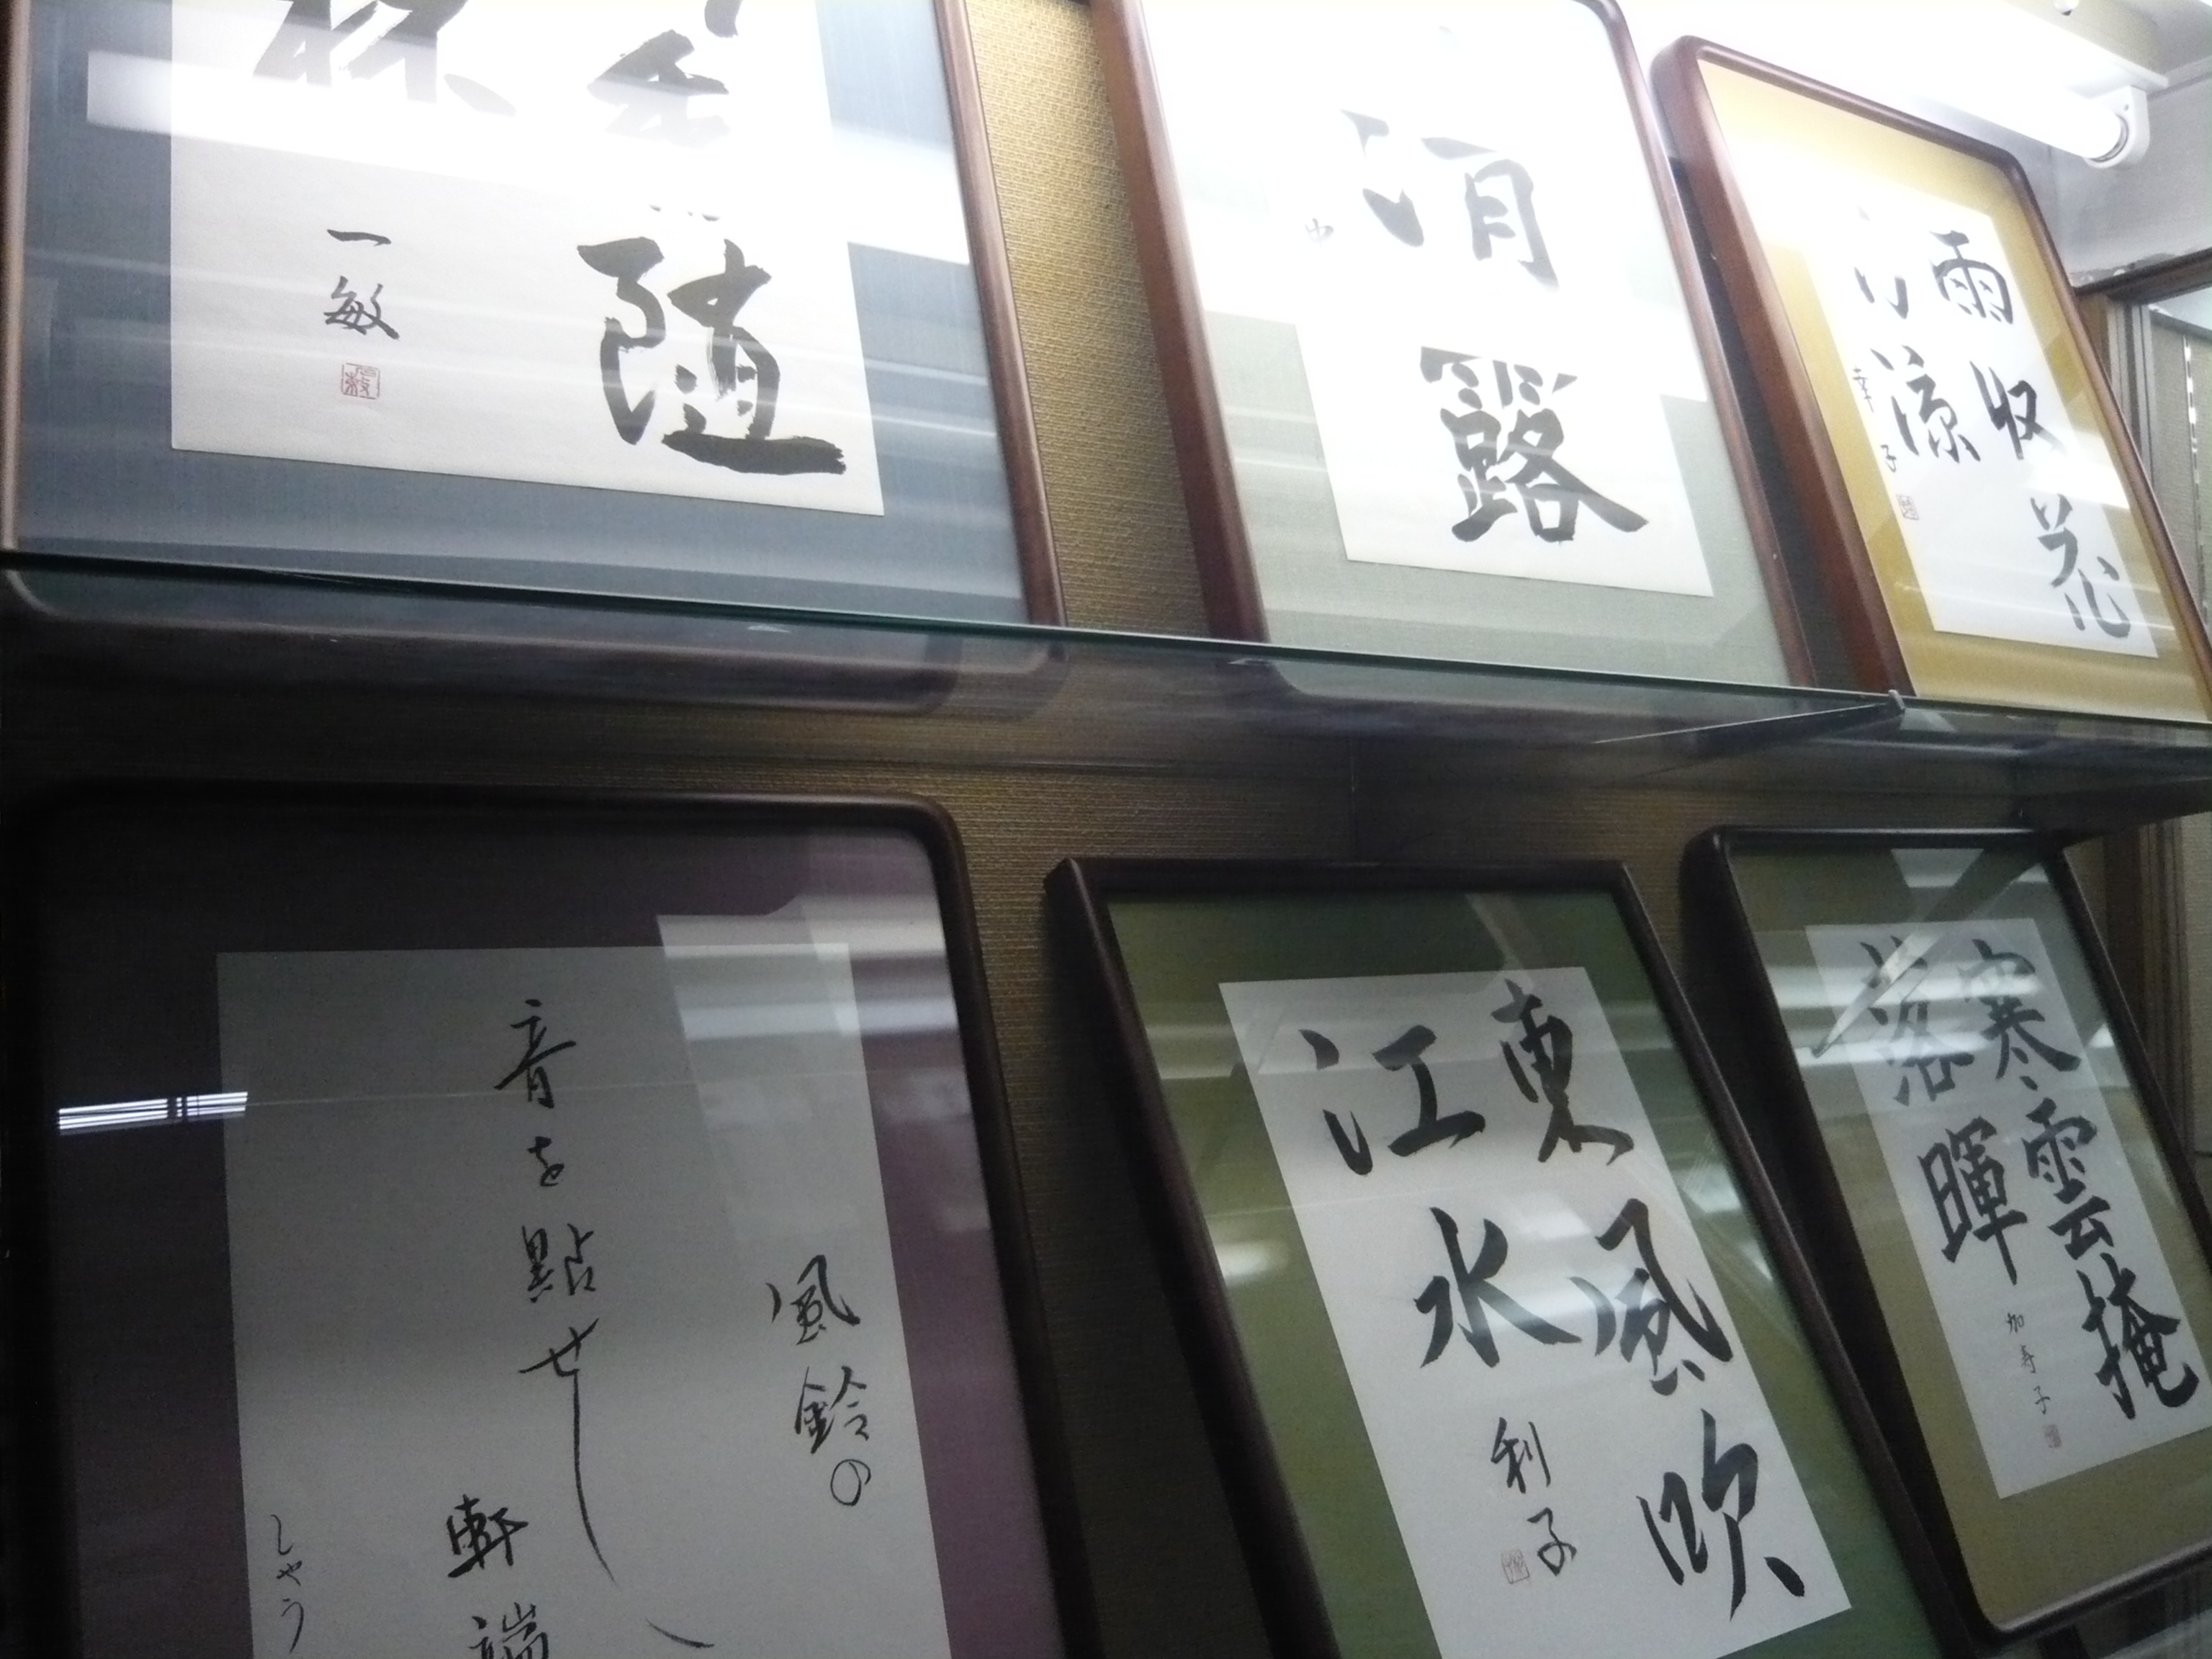 随
一敏
涓
露
雨収花
涼
幸子
風鈴の
音を點せし
軒端
しやう
東風吹
江水
利子
寒雲掩
落暉
加寿子